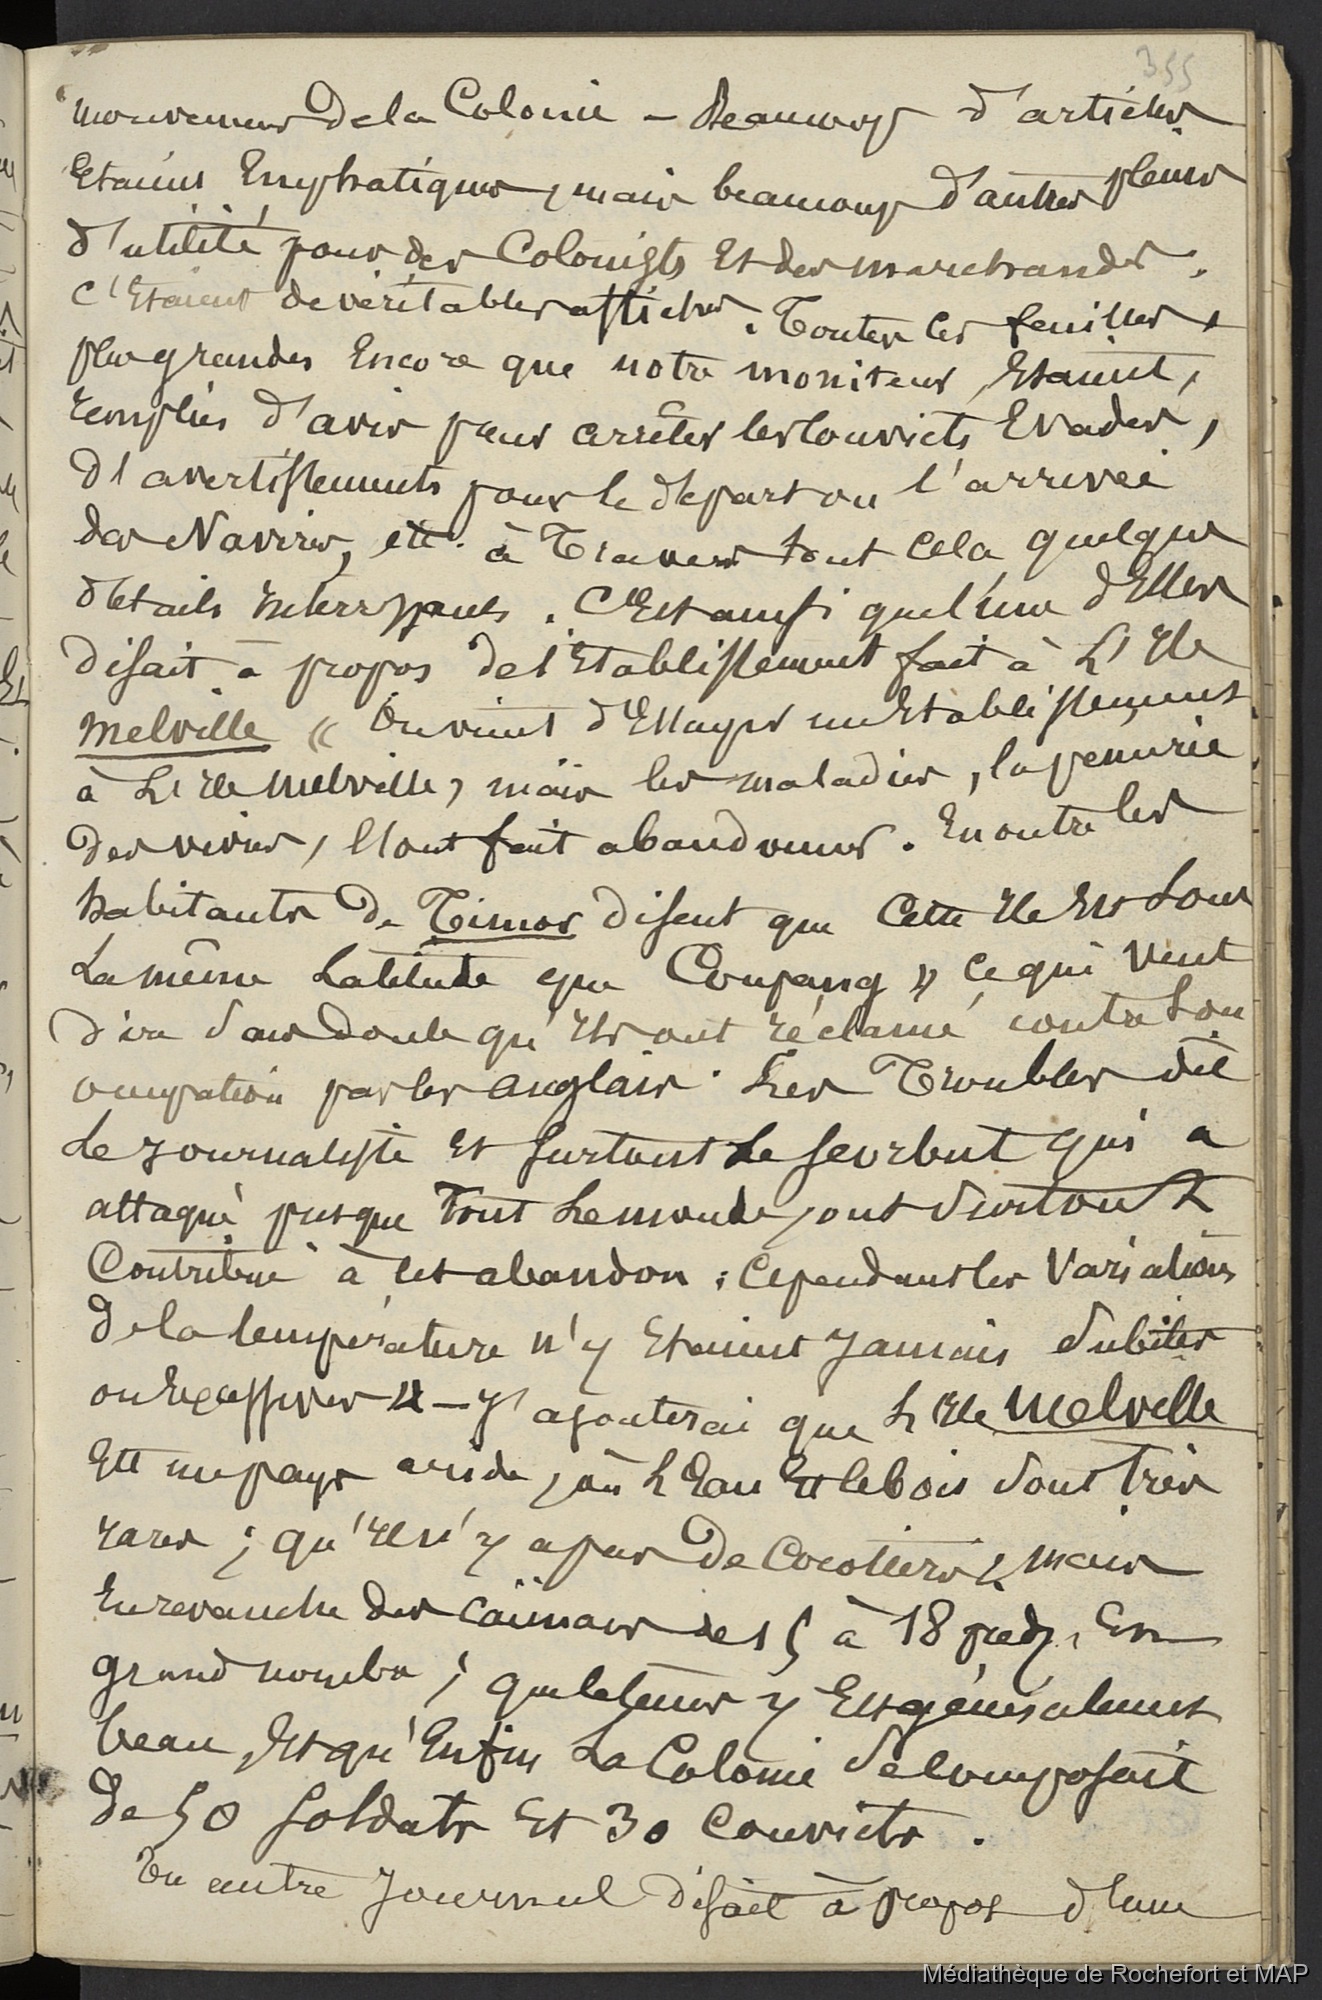 355
mouvemens de la Colonie – Beaucoup d'articles
Etaient Emphatiques, mais beaucoup d'autres pleins
d'utilité pour des Colonists Et des marchands.
C'Etaient de véritables affiches. Toutes les feuilles,
plus grandes Encore que notre moniteur, Etaient,
remplies d'avis pour arrêter les Convicts Evadés,
d'avertissements pour le départ ou l'arrivée
des Navires, ett. à Travers tout cela quelques
détails intéressants. C'Est ainsi que l'une d'Elles
disait à propos de l'Etablissement fait à L'Ile
Melville « On vient d'Essayer un Etablissement
à L'Ile Melville, mais les maladies, la penurie
des vivres, l'ont fait abandonner. En outre les
habitants de Timor disent que Cette Ile Est sous
La même Latitude que Coupang » ce qui veut
dire sans doute qu'Ils ont réclamé contre son
occupation par les anglais. Les Troubles dit
Le Journaliste et surtout Le scorbut qui a
attaqué presque tout Le monde, ont surtout
Contribué à cet abandon ; cependant les Variations
de la température n'y Etaient Jamais Subites
ou Excessives » – J'ajouterai que L'Ile Melville
Ett un pays aride, où L'Eau Et le bois sont très
rares ; qu'Il n'y a pas de Cocotiers, mais
En revanche des Caïmans de 15 à 18 pieds, En
grand nombre ; que le tems y Est généralement
beau, Et qu'Enfin La Colonie se composait
de 50 Soldats Et 30 Convicts.
Un autre Journal disait à propos d'une
Médiathèque de Rochefort et MAP